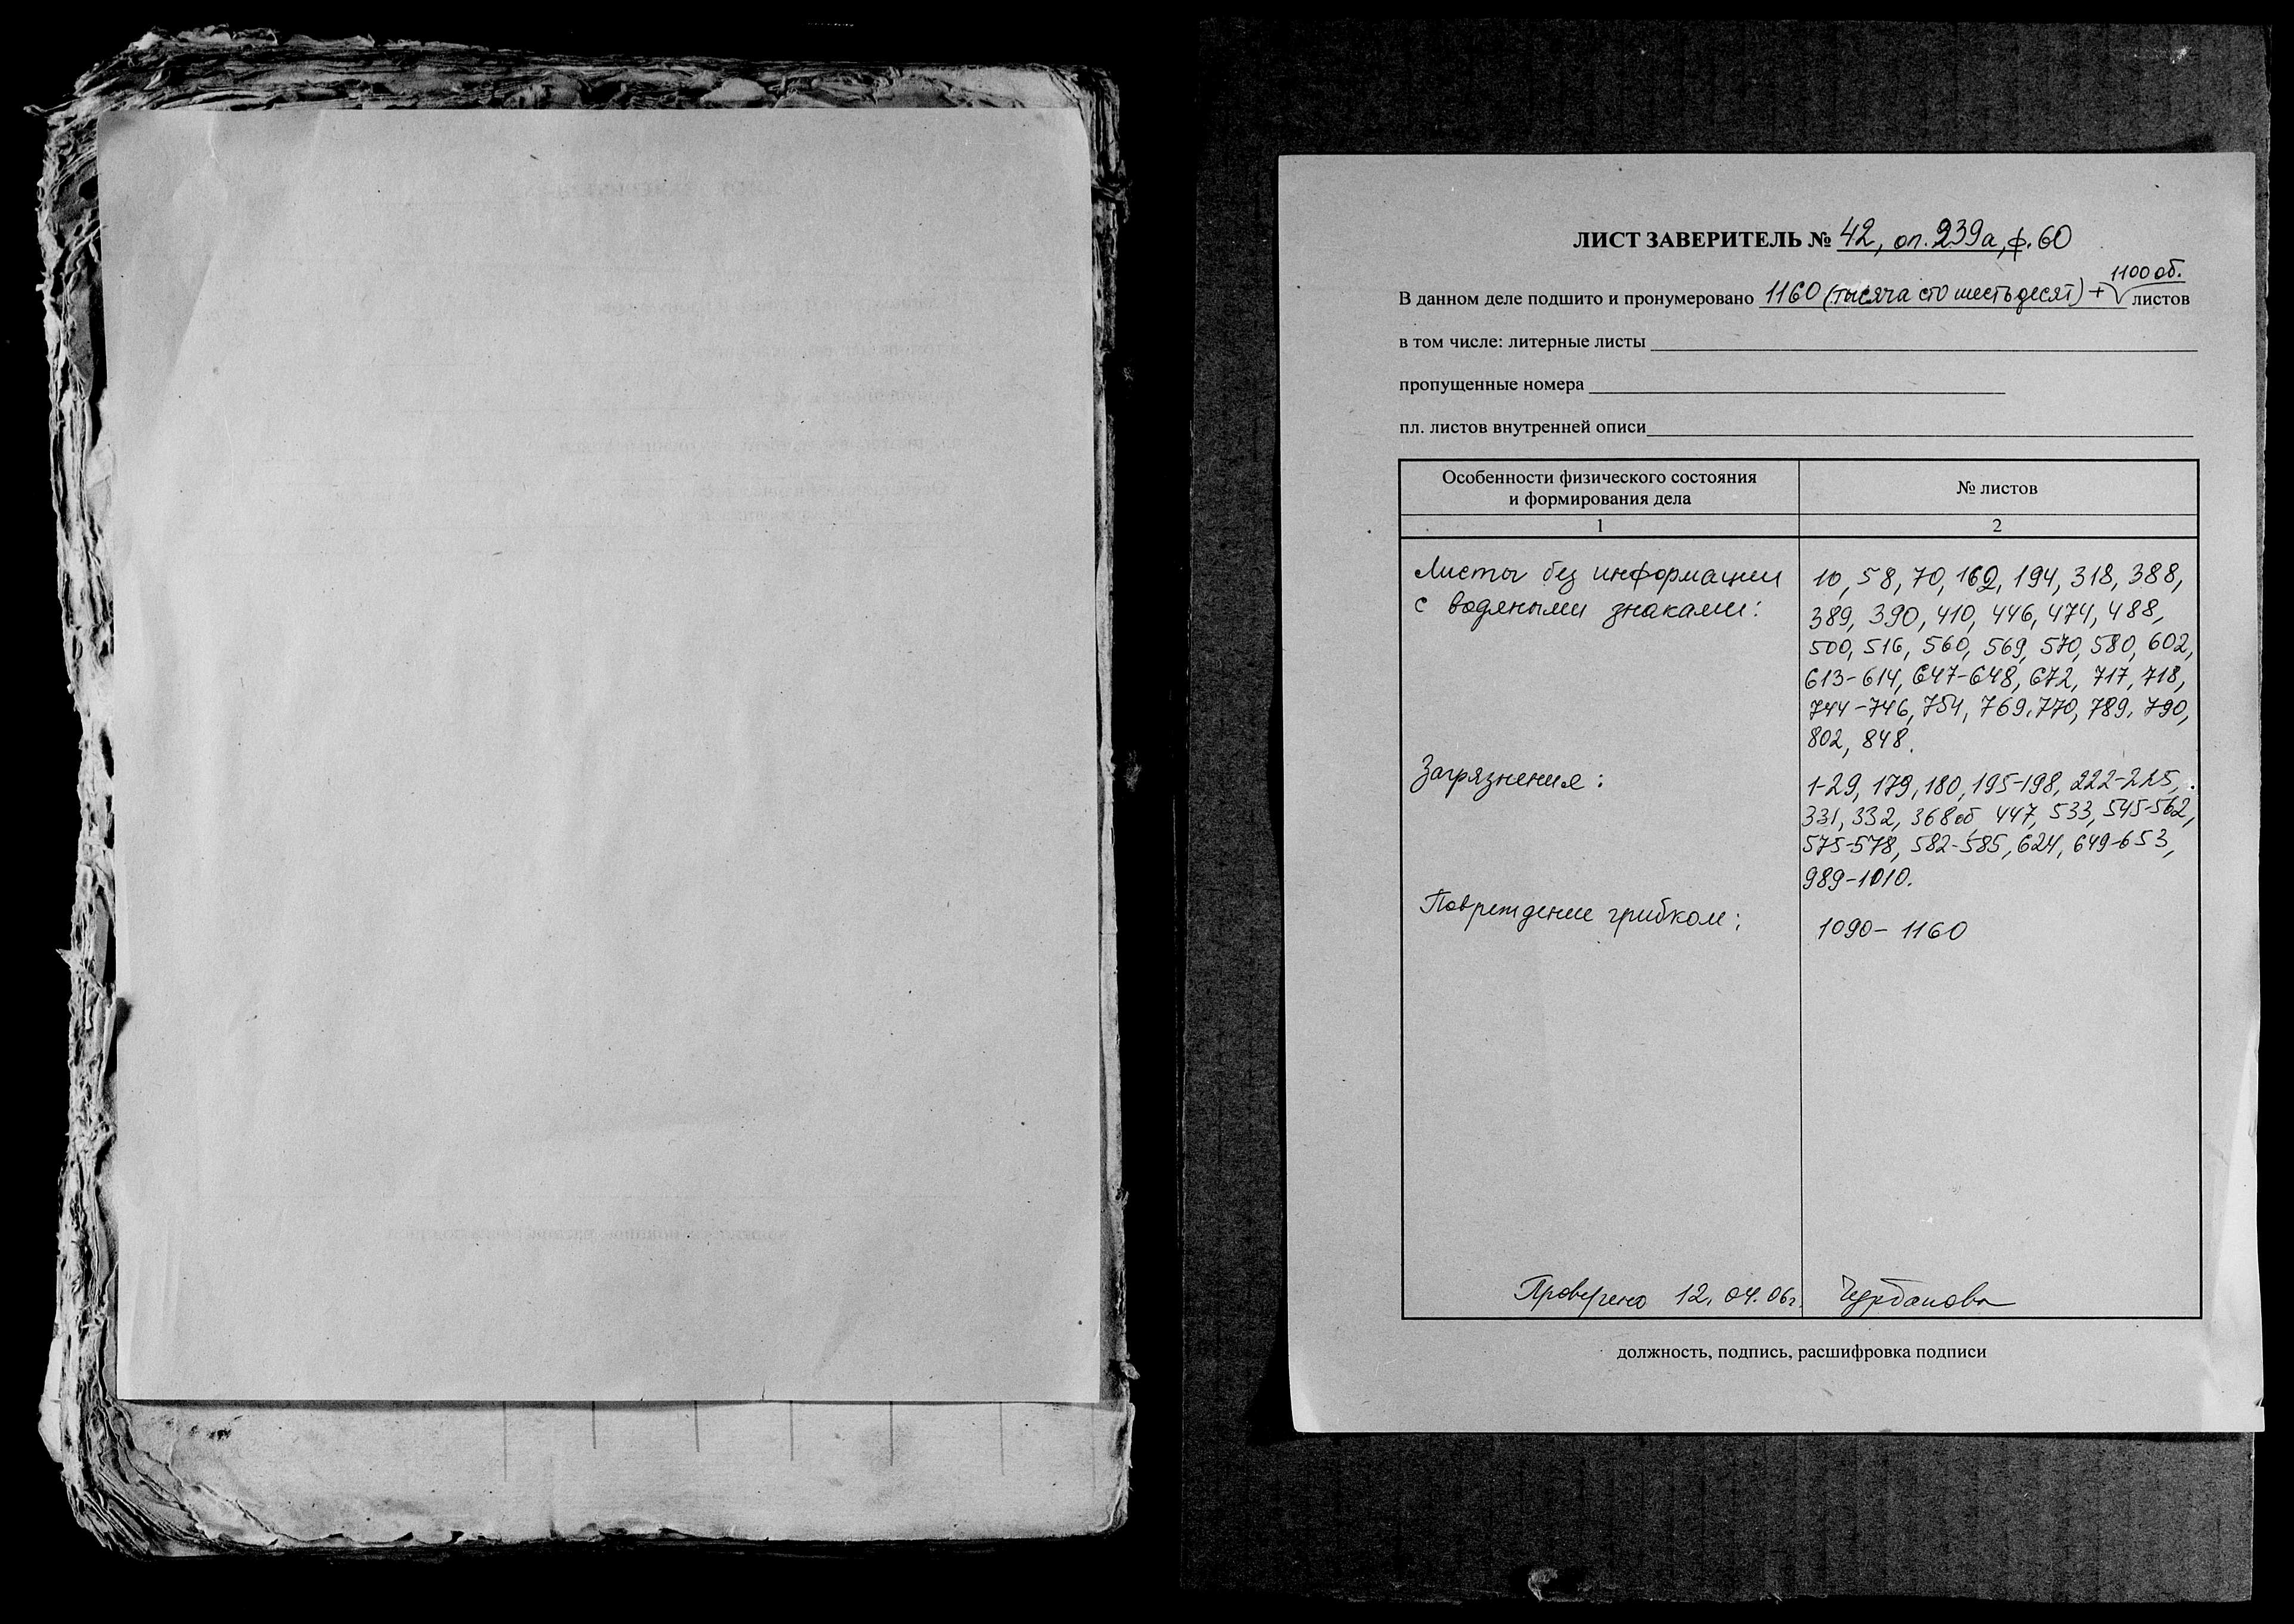 ЛИСТ ЗАВЕРИТЕЛЬ № 42, оп. 239а, ф. 60
1100 об.
В данном деле подшито и пронумеровано 1160 (тысяча сто шестьдесят) + листов
в том числе: литерные листы
пропущенные номера
пл. листов внутренней описи
Особенности физического состояния
и формирования дела
№ листов
1
2
Листы без информации
с водяными знаками:
10, 58, 70, 162, 194, 318, 388,
389, 390, 410, 446, 474, 488,
500, 516, 560, 569, 570, 580, 602,
613-614, 647-648, 672, 717, 718,
744-746, 754, 769, 770, 789, 790,
802, 848.
Загрязнения:
1-29, 179, 180, 195-198, 222-225,
331, 332, 368об 447, 533, 545-562,
575-578, 582-585, 624, 649-653,
989-1010.
Повреждение грибком:
1090-1160
Проверено 12.04.06г. Чурбанова
должность, подпись, расшифровка подписи